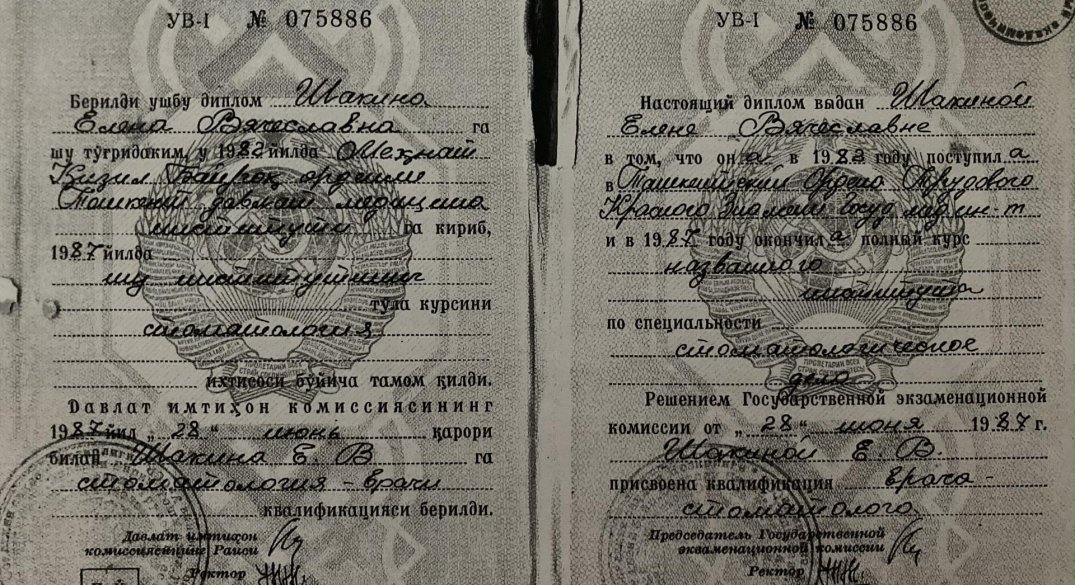 УВ-I № 075886
Берилди ушбу диплом Шакина
Елена Вячеславна га
шу тўғридаким, у 1982 йилда Меҳнат
Қизил Байроқ орденли
Тошкент давлат медицина
институти га кириб,
1987 йилда
шу институтнинг
тўла курсини
стоматология
ихтисоси бўйича тамом қилди.
Давлат имтиҳон комиссиясининг
1987 йил „28“ июнь қарори
билан Шакина Е. В га
стоматология - врачи
квалификацияси берилди.
Давлат имтиҳон
комиссиясининг Раиси
Ректор
УВ-I № 075886
Настоящий диплом выдан Шакиной
Елене Вячеславне
в том, что он а в 1982 году поступил а
в Ташкентский Ордена Трудового
Красного Знамени госуд мед ин-т
и в 1987 году окончил а полный курс
названного
института
по специальности
стоматологическое
дело
Решением Государственной экзаменационной
комиссии от „28“ июня 1987 г.
Шакиной Е. В.
присвоена квалификация врача-
стоматолога
Председатель Государственной
экзаменационной комиссии
Ректор